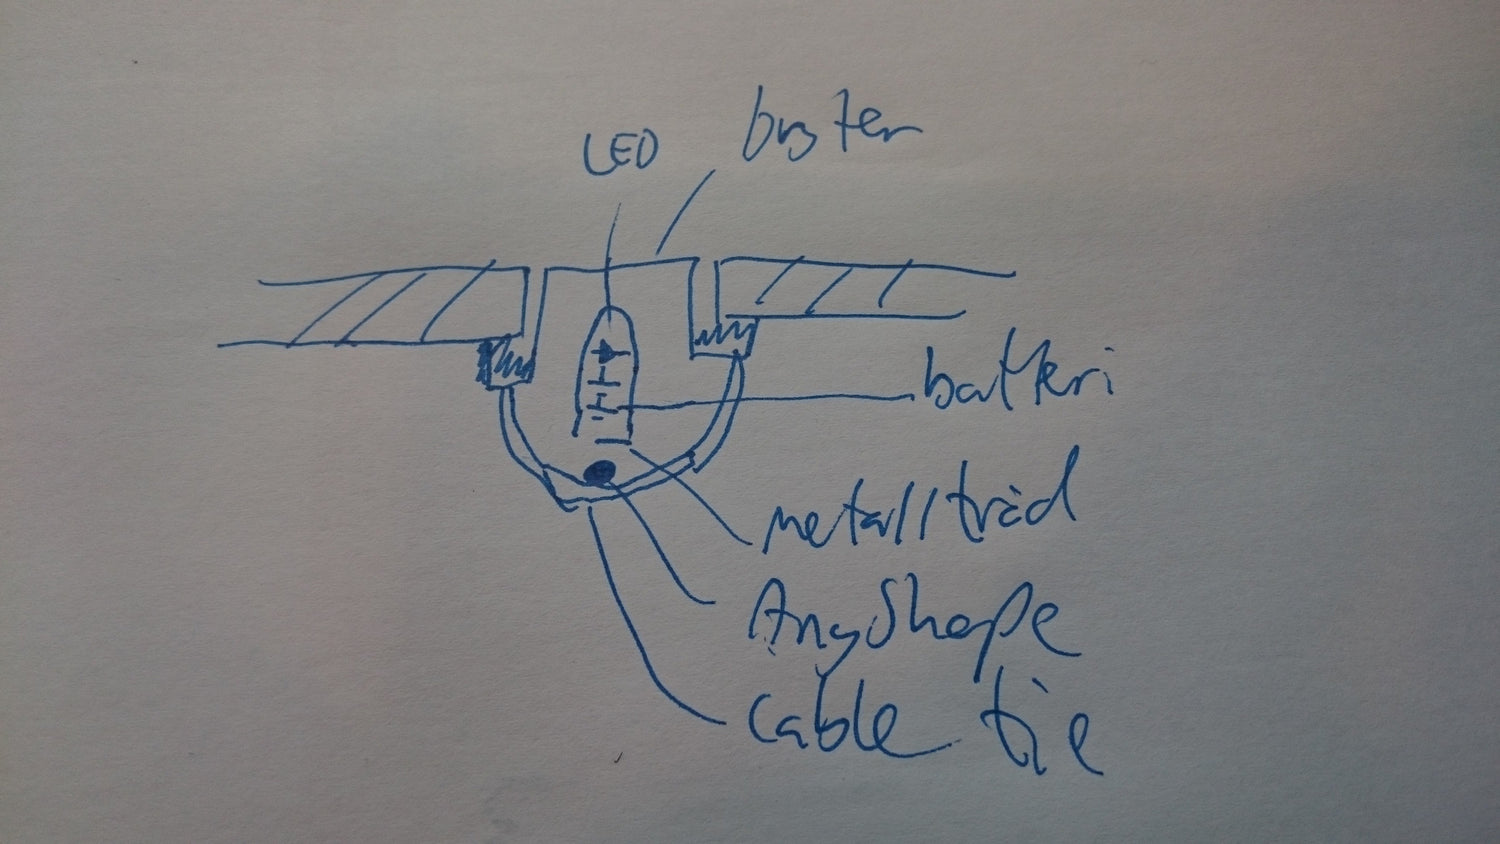 LED
bryter
batteri
metalltråd
AnyShape
cable tie